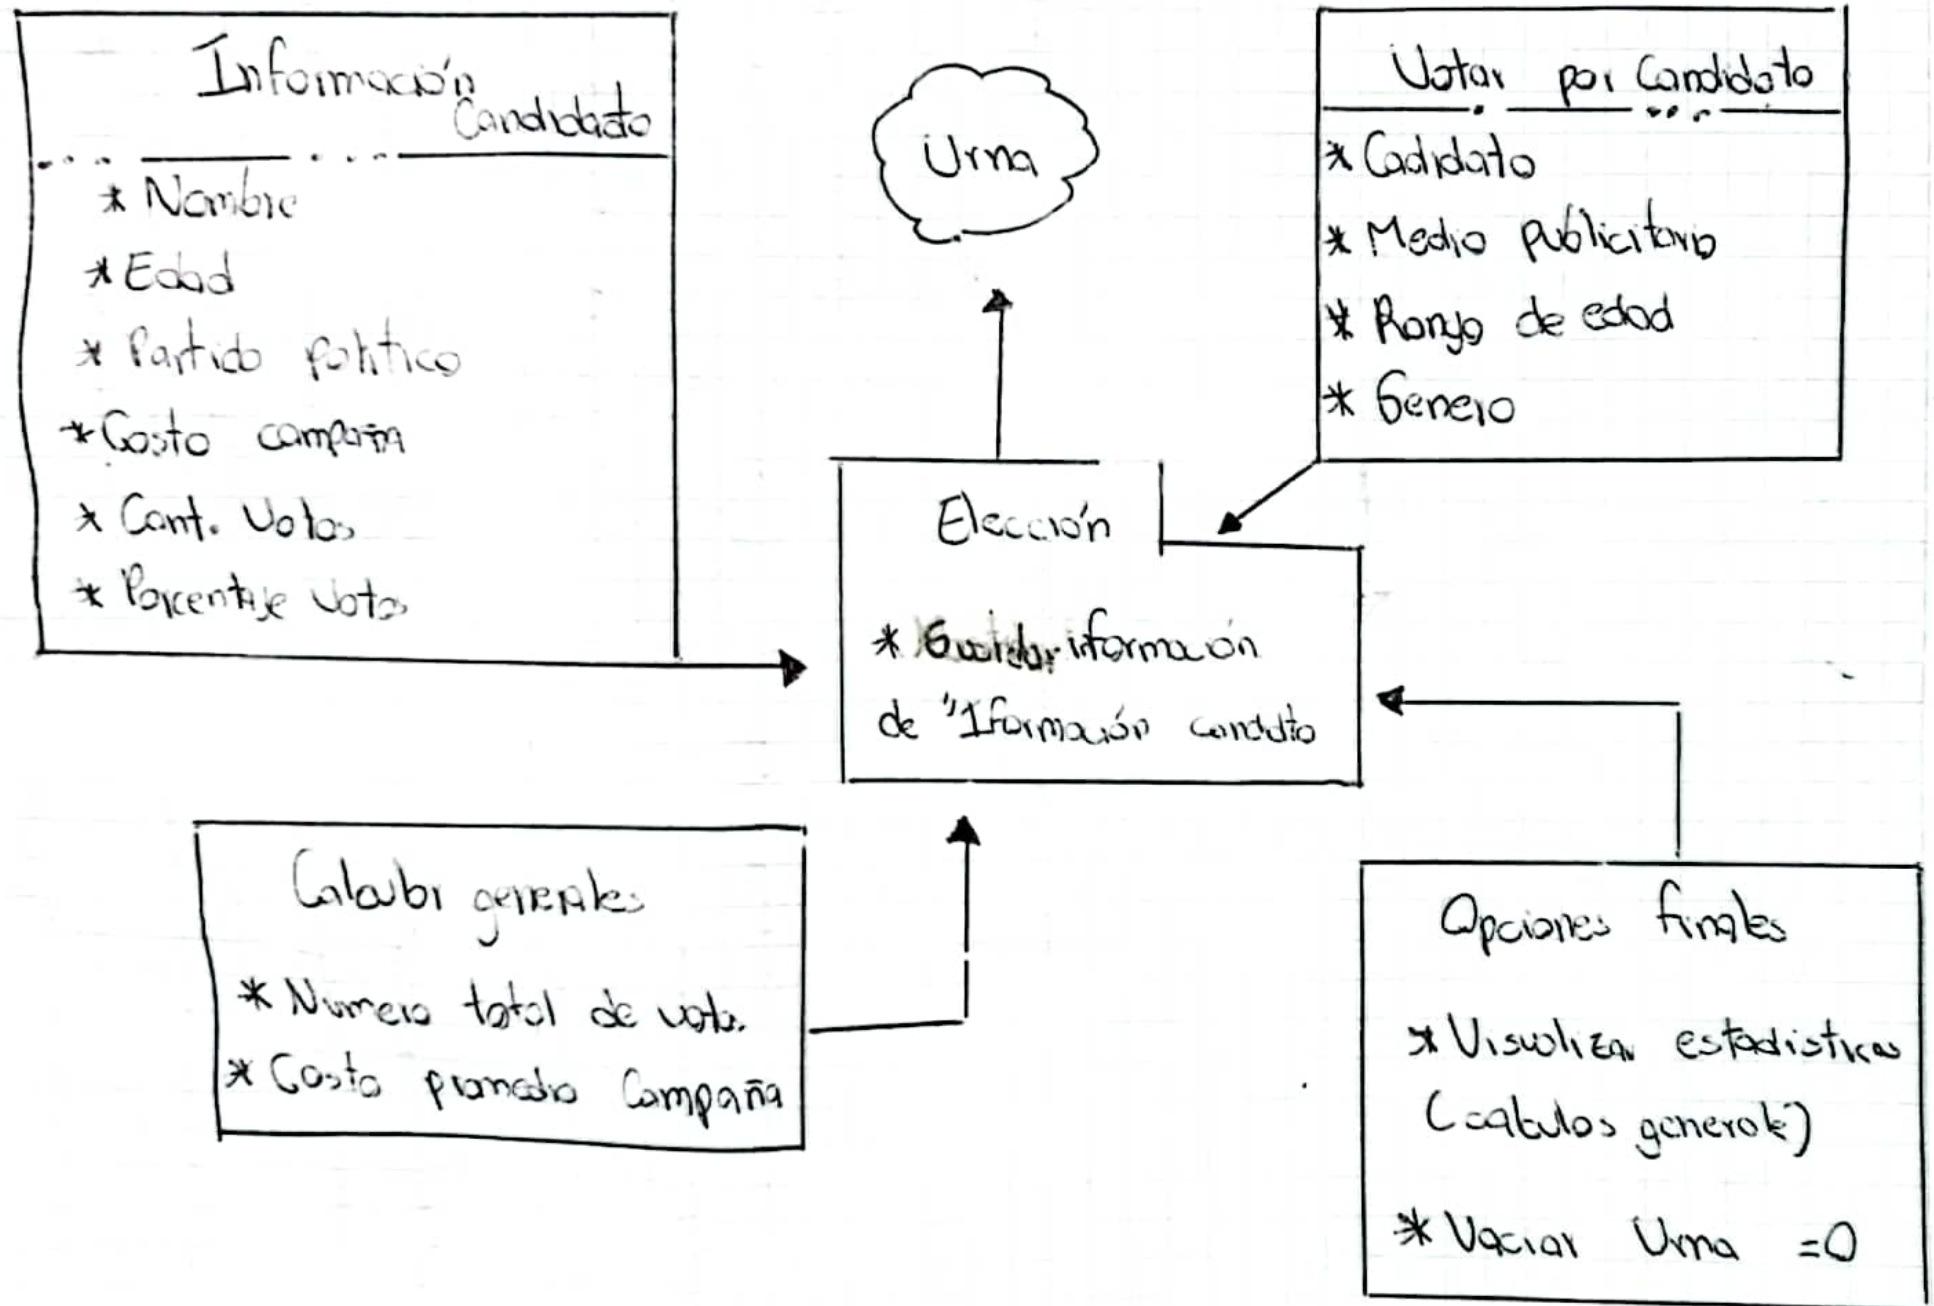 Información
Candidato
* Nombre
* Edad
* Partido político
* Costo campaña
* Cant. Votos
* Porcentaje Votos
Urna
Votar por Candidato
* Cadidato
* Medio publicitario
* Rango de edad
* Genero
Elección
* Guardar información
de "Iformación candidto
Calcular generales
* Numero total de votos
* Costo promedio Campaña
Opciones finales
* Visualizar estadisticas
(calculos generales)
* Vaciar Urna =0